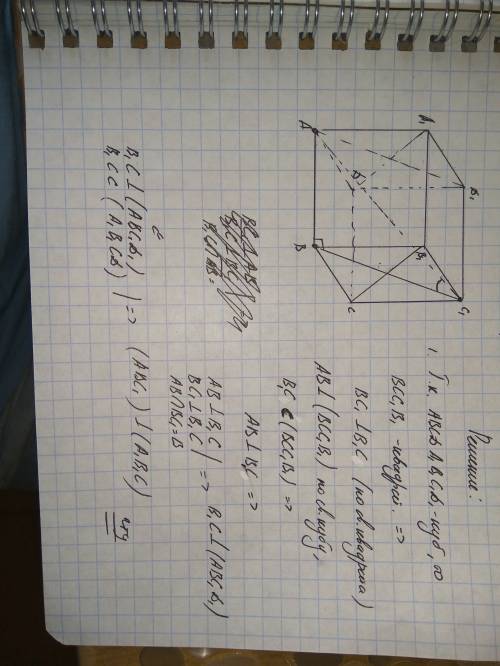 Решение:
1. Т.к. ABCDA₁B₁C₁D₁ - куб, то
BCC₁B₁ - квадрат. =>
BC₁ ⊥ B₁C (по св. квадрата)
AB ⊥ (BCC₁B₁) по св. куба,
B₁C ⊂ (BCC₁B₁) =>
AB ⊥ B₁C =>
AB ⊥ B₁C
BC₁ ⊥ B₁C | => B₁C ⊥ (ABC₁D₁)
AB ∩ BC₁ = B
B₁C ⊥ (ABC₁D₁)
B₁C ⊂ (A₁B₁CD) | => (ABC₁) ⊥ (A₁B₁C)
чтд
A₁
B₁
A
D
D₁
B
C
C₁